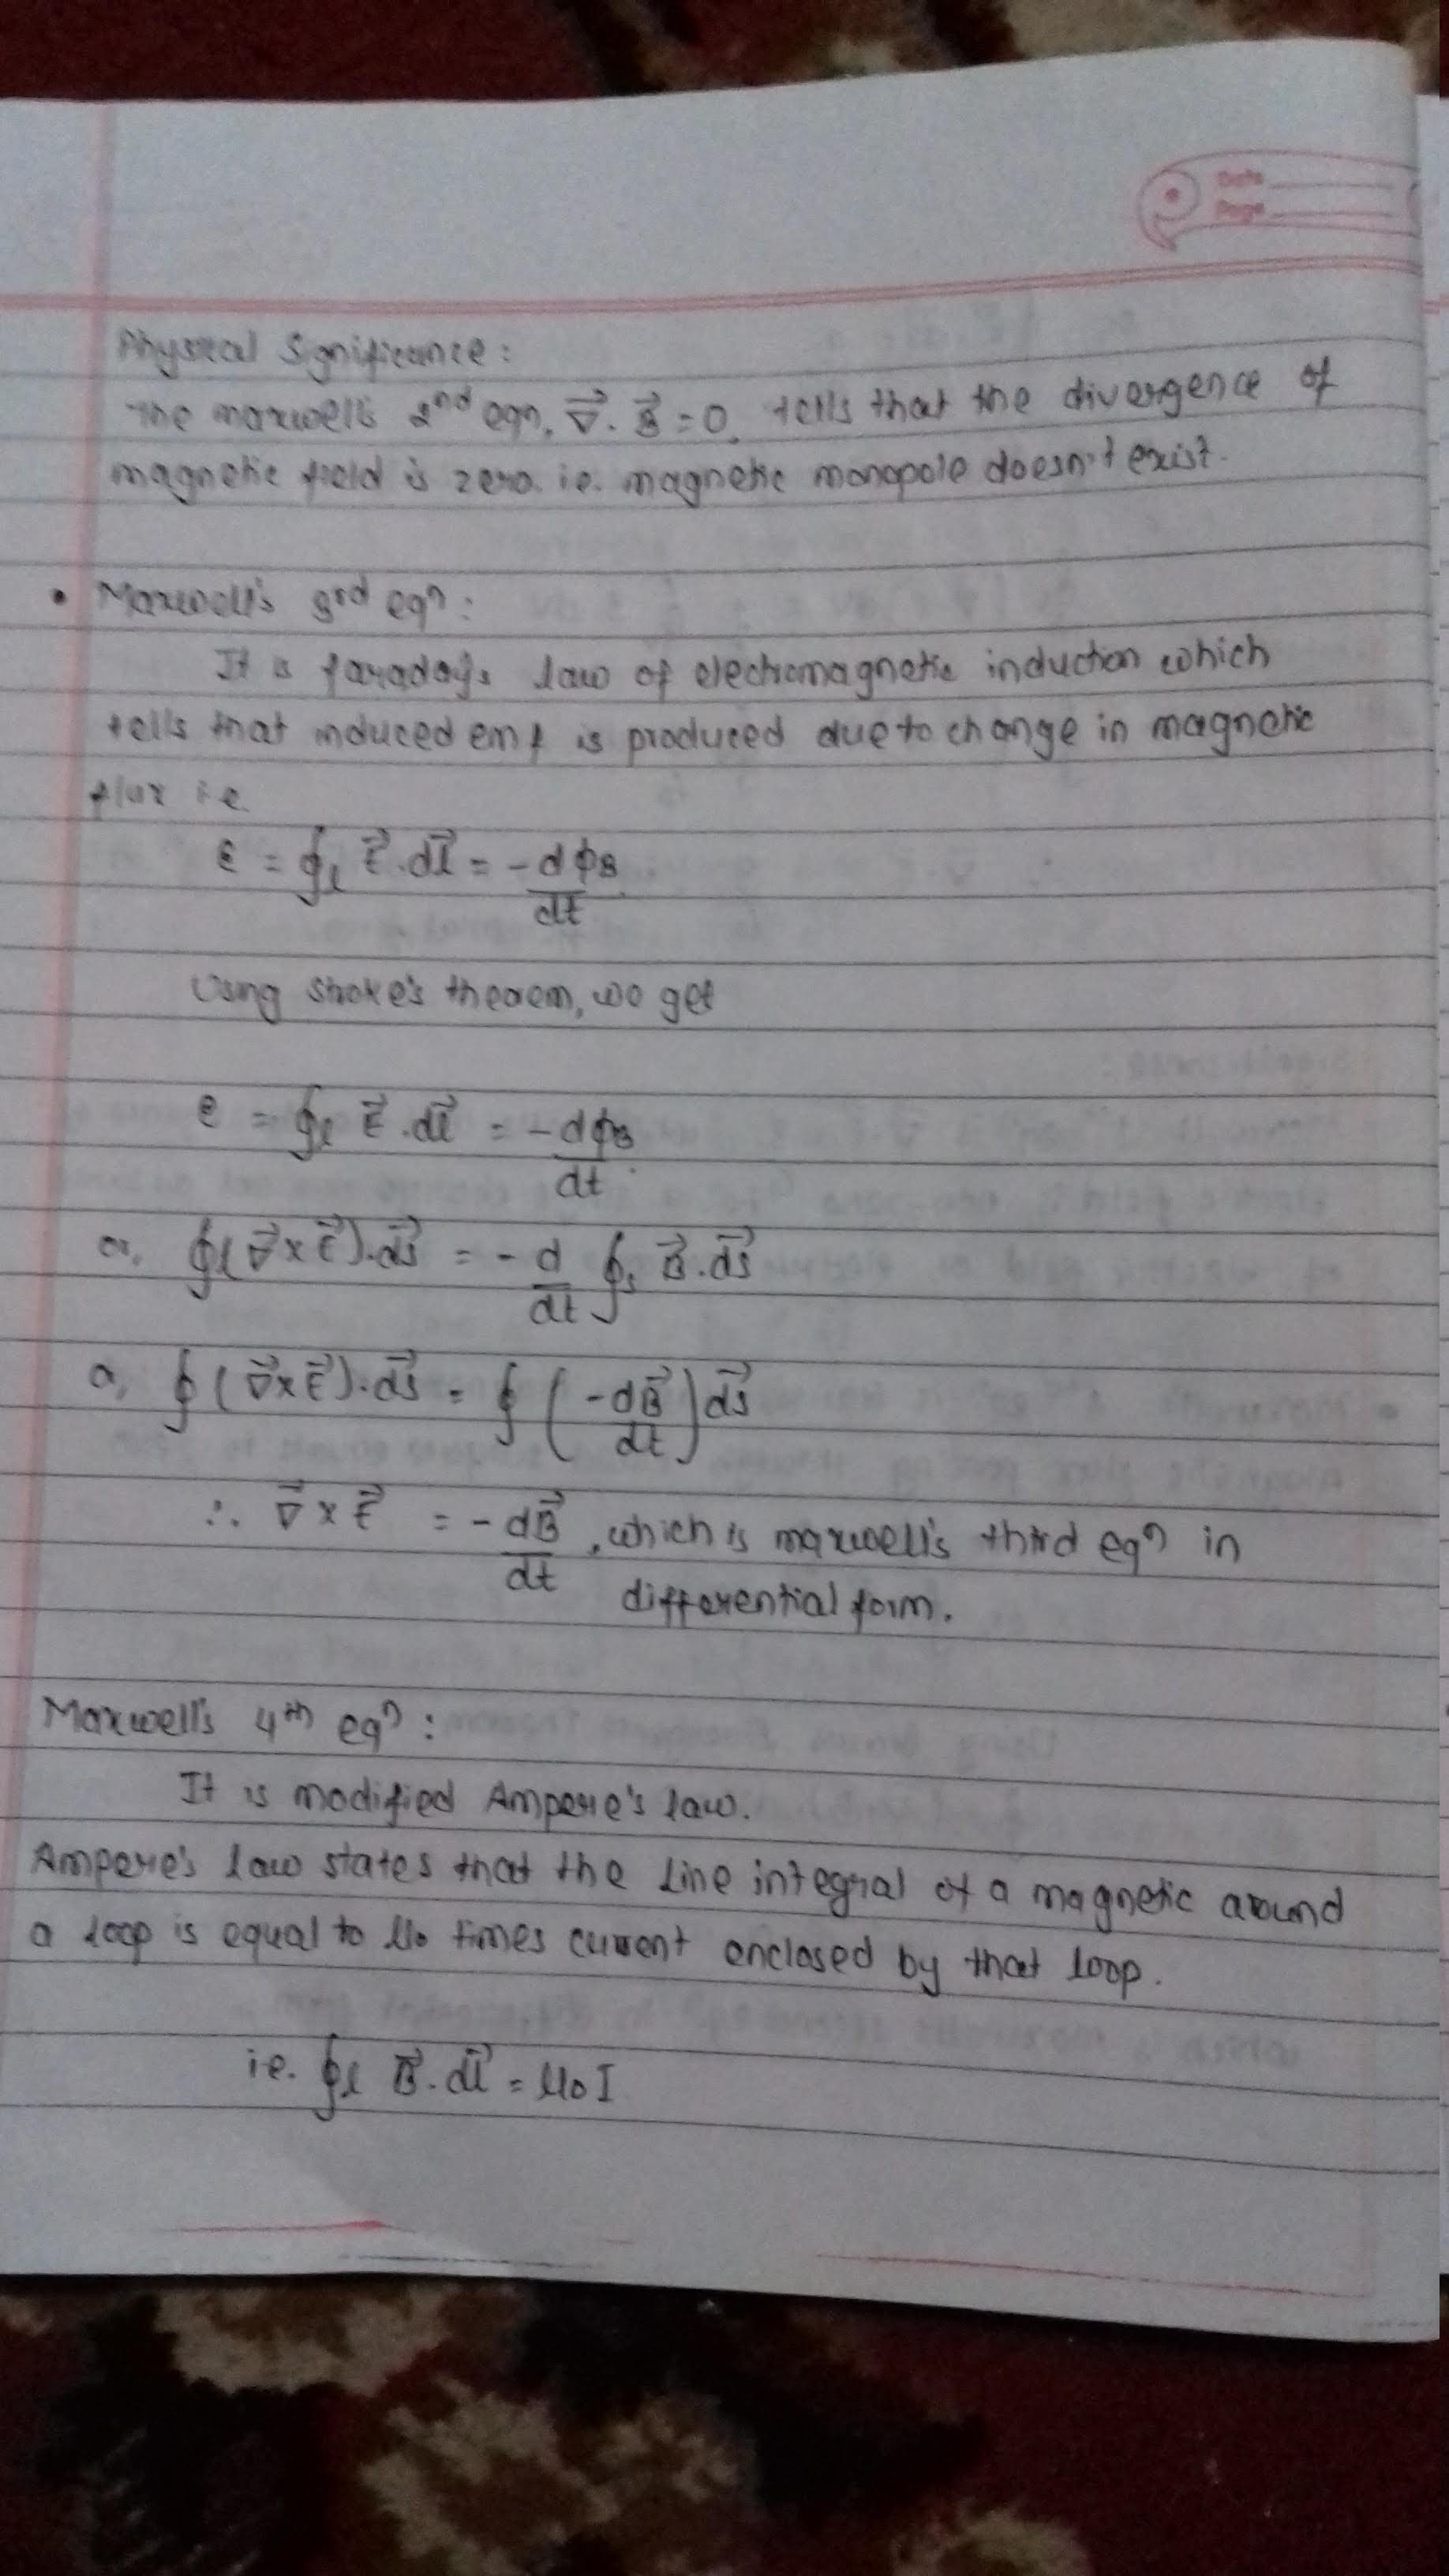 Date
Page
Physical Significance:
The maxwell's 2nd eqn, ∇⃗. B⃗ = 0, tells that the divergence of
magnetic field is zero. i.e. magnetic monopole doesn't exist.
• Maxwell's 3rd eqn:
It is faraday's law of electromagnetic induction which
tells that induced emf is produced due to change in magnetic
flux i.e
ε = ∮l E⃗.dl⃗ = -dϕB/dt
Using stroke's theorem, we get
e = ∮l E⃗.dl⃗ = -dϕB/dt.
or, ∮(∇⃗×E⃗).ds⃗ = -d/dt ∮s B⃗.ds⃗
or, ∮(∇⃗×E⃗).ds⃗ = ∮(-dB⃗/dt)ds⃗
∴ ∇⃗×E⃗ = -dB⃗/dt, which is maxwell's third eqn in
differential form.
Maxwell's 4th eqn:
It is modified Ampere's law.
Ampere's law states that the line integral of a magnetic around
a loop is equal to μ0 times current enclosed by that loop.
i.e. ∮l B⃗.dl⃗ = μ0I